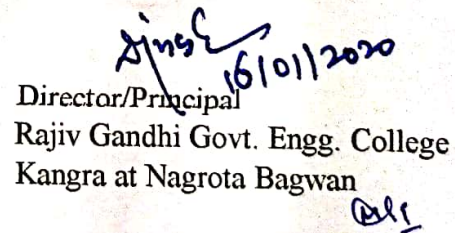 16/01/2020
Director/Principal
Rajiv Gandhi Govt. Engg. College
Kangra at Nagrota Bagwan